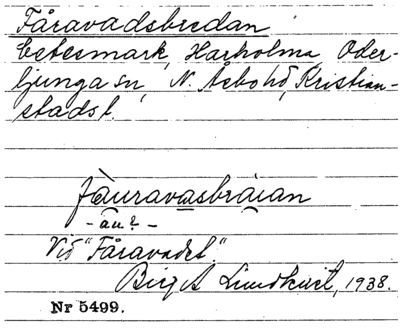 Fåravadsbredan
betesmark, Hårholma, Oder-
ljunga sn, N. Åsbo hd, Kristian-
stads l.
fàuravasbräian
- äu? -
Vid "Fåravadet."
Birgit Lundkvist, 1938.
Nr 5499.